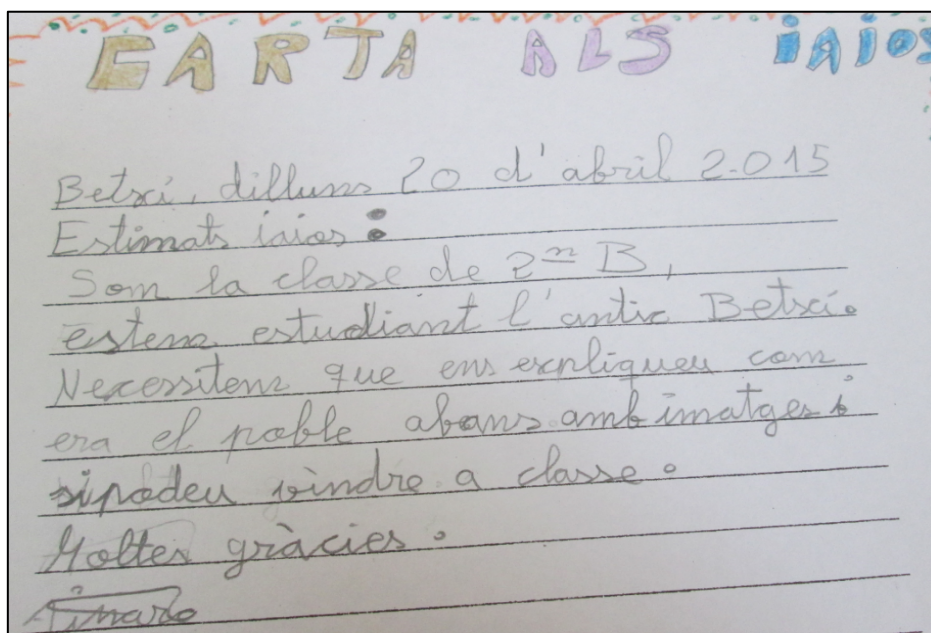 CARTA ALS iAiOS
Betxí, dilluns 20 d'abril 2.015
Estimats iaios:
Som la classe de 2n B,
estem estudiant l'antic Betxí.
Necessitem que ens expliqueu com
era el poble abans amb imatges i
si podeu vindre a classe.
Moltes gràcies.